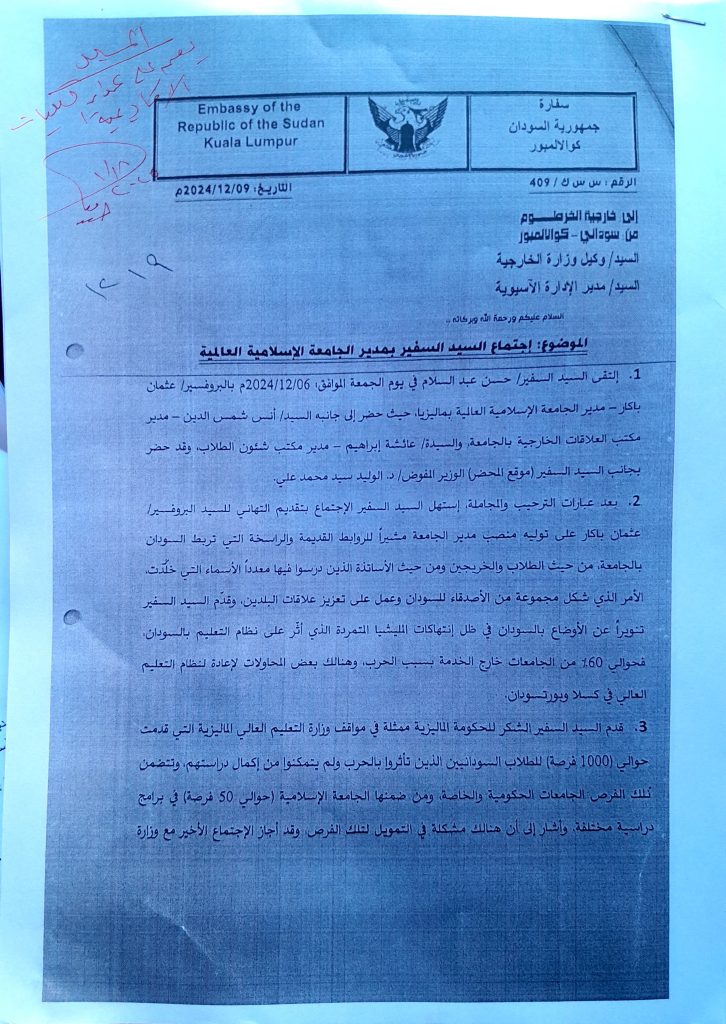 المسجل
يعمم على عمداء الكليات
١/١٨
Embassy of the
Republic of the Sudan
Kuala Lumpur
سفارة
جمهورية السودان
كوالالمبور
الرقم : س س ك / 409
التاريخ: 2024/12/09م
إلى خارجية الخرطــوم
من سوداني - كوالالمبور
السيد/ وكيل وزارة الخارجية
السيد/ مدير الإدارة الآسيوية
١٢١٩
السلام عليكم ورحمة الله وبركاته ..
الموضوع: إجتماع السيد السفير بمدير الجامعة الإسلامية العالمية
1. إلتقى السيد السفير/ حسن عبد السلام في يوم الجمعة الموافق: 2024/12/06م بالبروفسير/ عثمان
باكار – مدير الجامعة الإسلامية العالية بماليزيا، حيث حضر إلى جانبه السيد/ أنس شمس الدين – مدير
مكتب العلاقات الخارجية بالجامعة، والسيدة/ عائشة إبراهيم – مدير مكتب شئون الطلاب، وقد حضر
بجانب السيد السفير (موقع المحضر) الوزير المفوض/ د. الوليد سيد محمد علي.
2. بعد عبارات الترحيب والمجاملة، إستهل السيد السفير الإجتماع بتقديم التهاني للسيد البروفير/
عثمان باكار على توليه منصب مدير الجامعة مشيراً للروابط القديمة والراسخة التي تربط السودان
بالجامعة، من حيث الطلاب والخريجين ومن حيث الأساتذة الذين درسوا فيها معدداً الأسماء التي خلّدت،
الأمر الذي شكل مجموعة من الأصدقاء للسودان وعمل على تعزيز علاقات البلدين، وقدّم السيد السفير
تنويراً عن الأوضاع بالسودان في ظل إنتهاكات المليشيا المتمردة الذي أثّر على نظام التعليم بالسودان،
فحوالي 60٪ من الجامعات خارج الخدمة بسبب الحرب، وهنالك بعض المحاولات لإعادة لنظام التعليم
العالي في كسلا وبورتسودان.
3. قدم السيد السفير الشكر للحكومة الماليزية ممثلة في مواقف وزارة التعليم العالي الماليزية التي قدمت
حوالي (1000 فرصة) للطلاب السودانيين الذين تأثروا بالحرب ولم يتمكنوا من إكمال دراستهم، وتتضمن
تلك الفرص الجامعات الحكومية والخاصة، ومن ضمنها الجامعة الإسلامية (حوالي 50 فرصة) في برامج
دراسية مختلفة، وأشار إلى أن هنالك مشكلة في التمويل لتلك الفرص، وقد أجاز الإجتماع الأخير مع وزارة